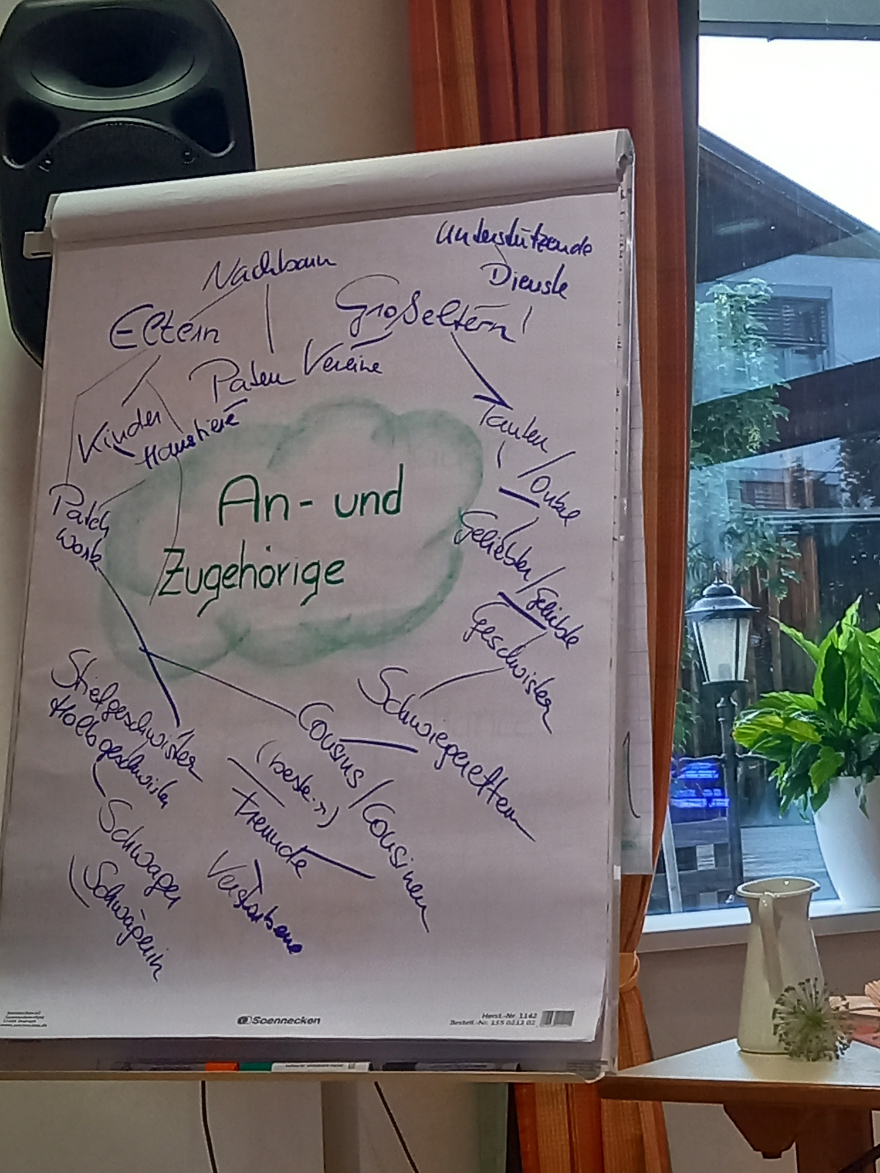 unterstützende
Dienste
Nachbarn
Großeltern!
Eltern
Paten Vereine
Kinder
Haustiere
Tanten
/Onkel
Patch
work
An- und
Zugehörige
Geliebter/Geliebte
Geschwister
Schwiegereltern
Stiefgeschwister
Halbgeschwister
Cousins/Cousinen
(beste :-))
Freunde
Schwager
Schwägerin
Verstorbene
Soennecken
Herst.-Nr. 1142
Bestell.-Nr. 155 0213 02